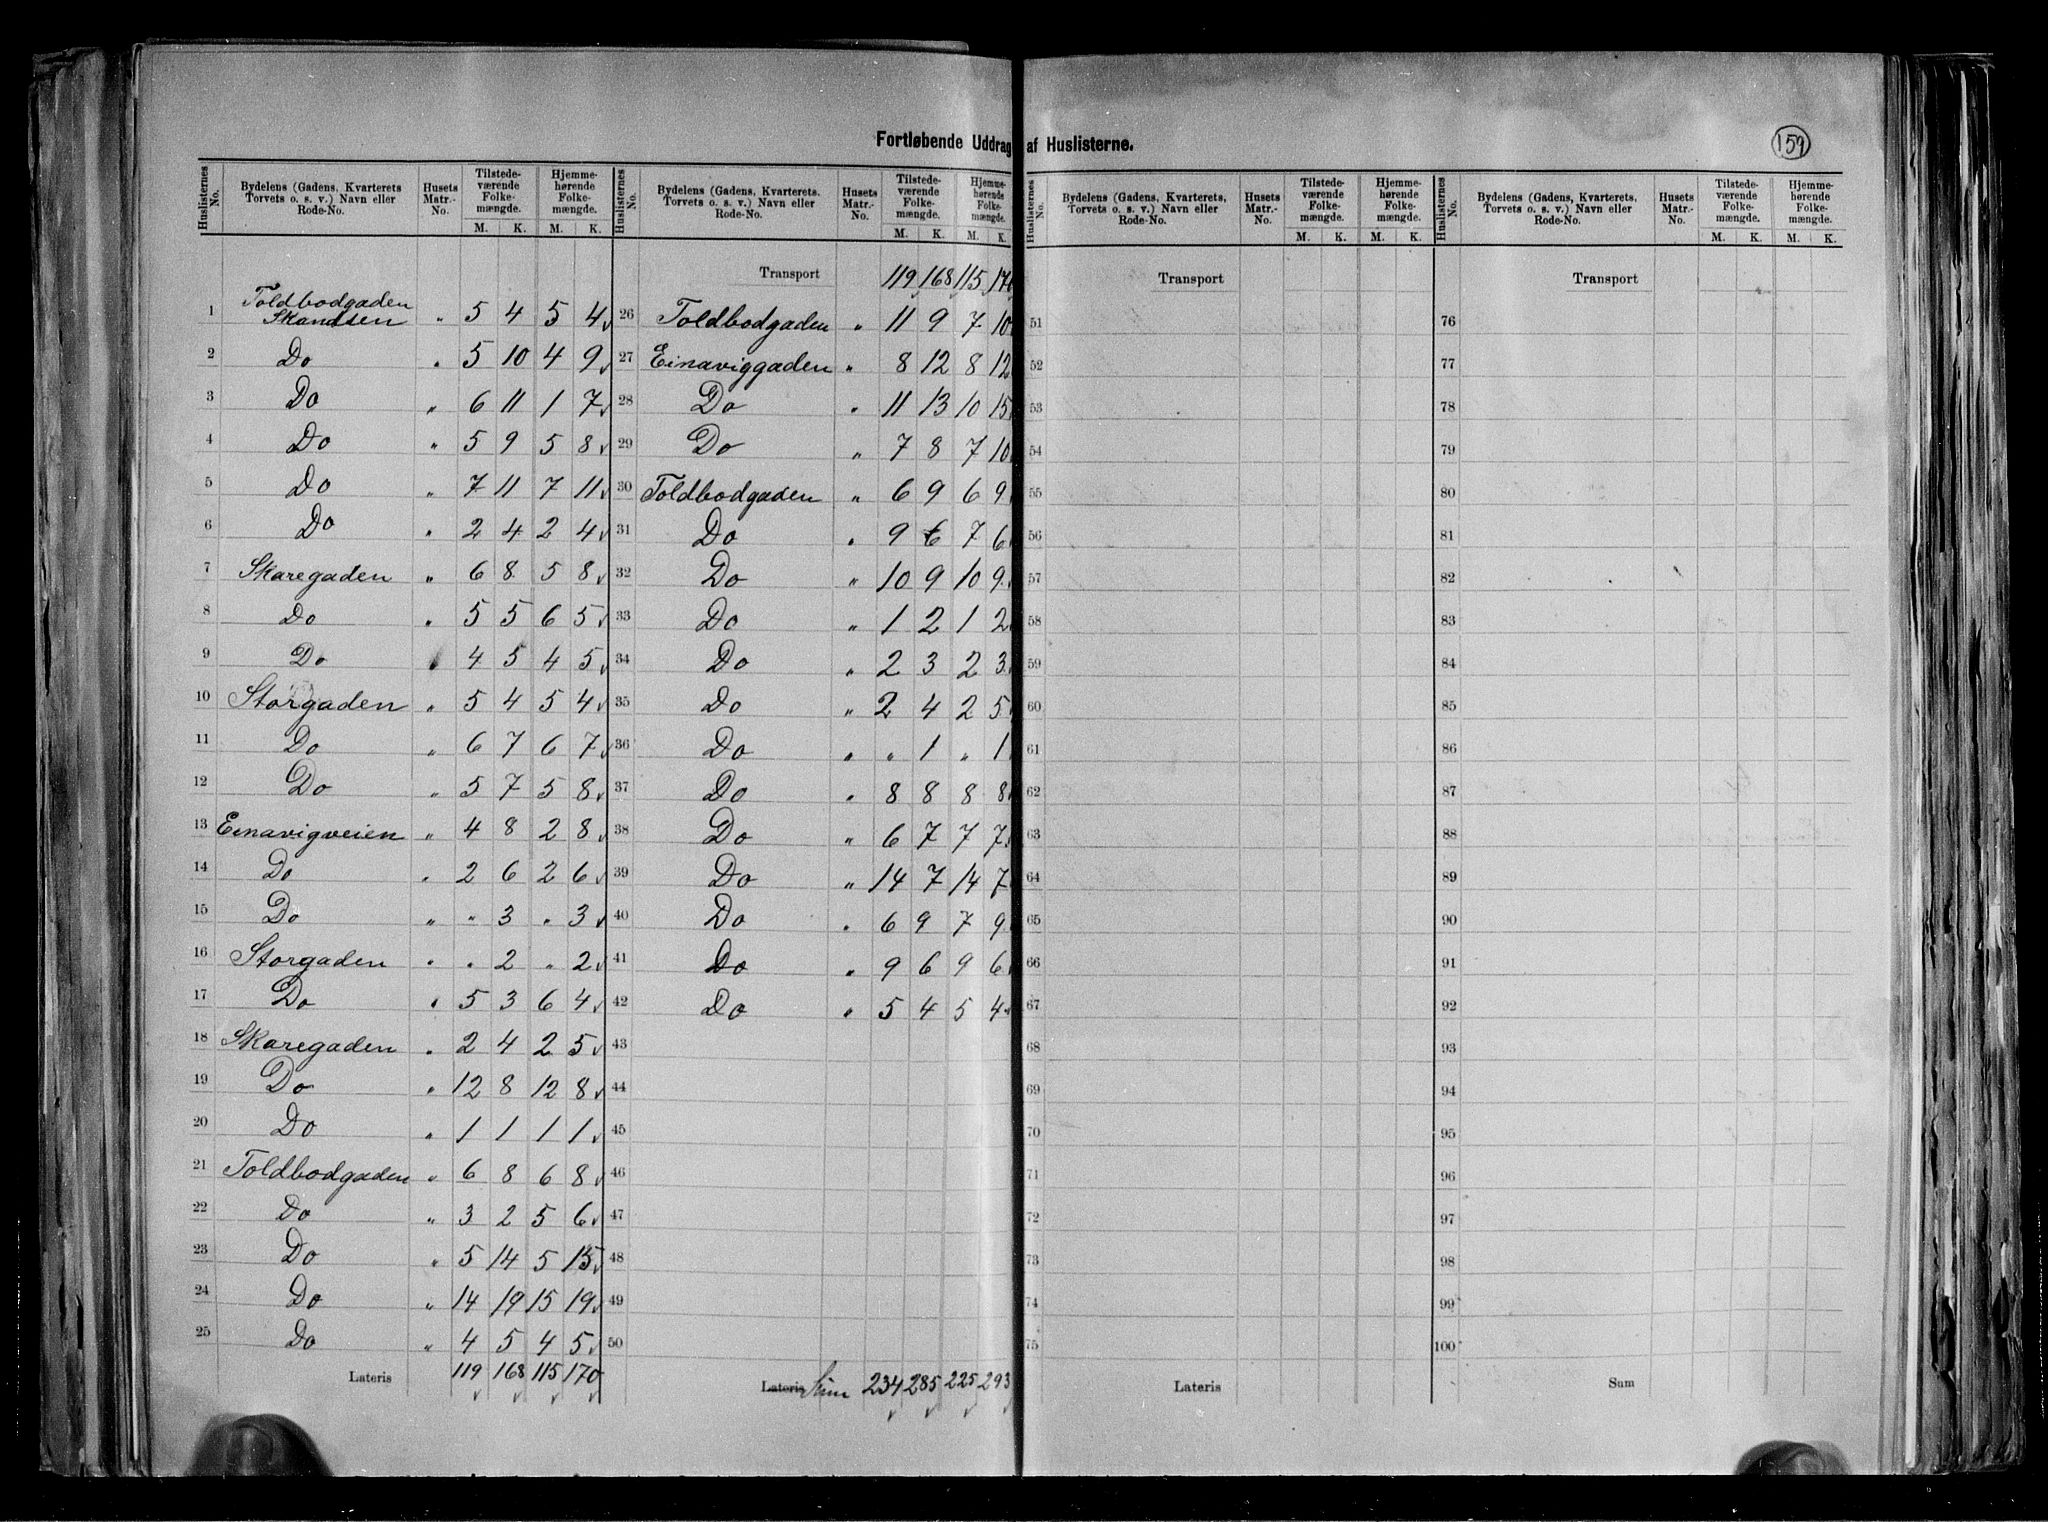 Fortløbende Uddrag af Huslisterne.
159
Huslisternes No. Bydelens (Gadens, Kvarterets Torvets o. s. v.) Navn eller Rode-No. Husets Matr.-No. Tilstede-værende Folke-mængde. M. K. Hjemme-hørende Folke-mængde. M. K.
1 Toldbodgaden Skandsen " 5 4 5 4
2 Do " 5 10 4 9
3 Do " 6 11 1 7
4 Do " 5 9 5 8
5 Do " 7 11 7 11
6 Do " 2 4 2 4
7 Skaregaden " 6 8 5 8
8 Do " 5 5 6 5
9 Do " 4 5 4 5
10 Storgaden " 5 4 5 4
11 Do " 6 7 6 7
12 Do " 5 7 5 8
13 Einavigveien " 4 8 2 8
14 Do " 2 6 2 6
15 Do " " 3 " 3
16 Storgaden " " 2 " 2
17 Do " 5 3 6 4
18 Skaregaden " 2 4 2 5
19 Do " 12 8 12 8
20 Do " 1 1 1 1
21 Toldbodgaden " 6 8 6 8
22 Do " 3 2 5 6
23 Do " 5 14 5 15
24 Do " 14 19 15 19
25 Do " 4 5 4 5
Lateris 119 168 115 170
Huslisternes No. Bydelens (Gadens, Kvarterets. Torvets o. s. v.) Navn eller Rode-No. Husets Matr.-No. Tilstede-værende Folke-mængde. M. K. Hjemme-hørende Folke-mængde. M. K.
Transport 119 168 115 170
26 Toldbodgaden " 11 9 7 10
27 Einaviggaden " 8 12 8 12
28 Do " 11 13 10 15
29 Do " 7 8 7 10
30 Toldbodgaden " 6 9 6 9
31 Do " 9 6 7 6
32 Do " 10 9 10 9
33 Do " 1 2 1 2
34 Do " 2 3 2 3
35 Do " 2 4 2 5
36 Do " " 1 " 1
37 Do " 8 8 8 8
38 Do " 6 7 7 7
39 Do " 14 7 14 7
40 Do " 6 9 7 9
41 Do " 9 6 9 6
42 Do " 5 4 5 4
43
44
45
46
47
48
49
50
Lateris Sum 234 285 225 293
Huslisternes No. Bydelens (Gadens, Kvarterets, Torvets o. s. v.) Navn eller Rode-No. Husets Matr.-No. Tilstede-værende Folke-mængde. M. K. Hjemme-hørende Folke-mængde. M. K.
Transport
51
52
53
54
55
56
57
58
59
60
61
62
63
64
65
66
67
68
69
70
71
72
73
74
75
Lateris
Huslisternes No. Bydelens (Gadens, Kvarterets, Torvets o. s. v.) Navn eller Rode-No. Husets Matr.-No. Tilstede-værende Folke-mængde. M. K. Hjemme-hørende Folke-mængde. M. K.
Transport
76
77
78
79
80
81
82
83
84
85
86
87
88
89
90
91
92
93
94
95
96
97
98
99
100
Sum